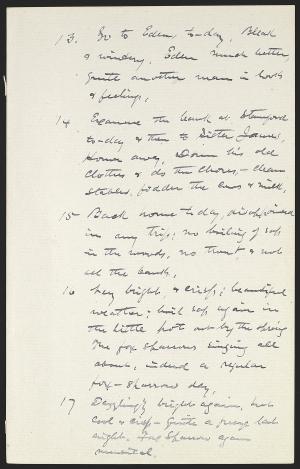 13. Go to Eden to-day, Bleak
& windery. Eden much better,
quite another man in looks
& feelings.
14 Examine the bank at Stamford
to-day & then to
Homer away. Down his old
clothes & do the chores, - clean
stables, fodder the cows & milk,
15 Back home to-day, disappointed
in my trip; no boiling of sap
in the woods, no trout & not
all the bank,
16 day bright & crisp; beautiful
weather; boil sap again in
the little hot out by the spring
The fox sparrows singing all
about; indeed a regular
fox-sparrow day,
17 Dazzlingly bright again, but
cool & crisp - quite a freeze last
night. Fox Sparrow again
musical.